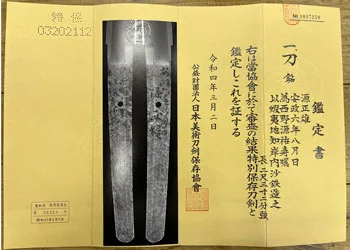 鑑定書
一、刀 銘
源正雄
安政六年八月日
以蝦夷地知岸内沙鉄造之
長二尺三寸二分強
右は當協會に於て審査の結果特別保存刀剣と
鑑定しこれを証する
令和四年三月二日
公益財團法人日本美術刀剣保存協會
特保
03202112